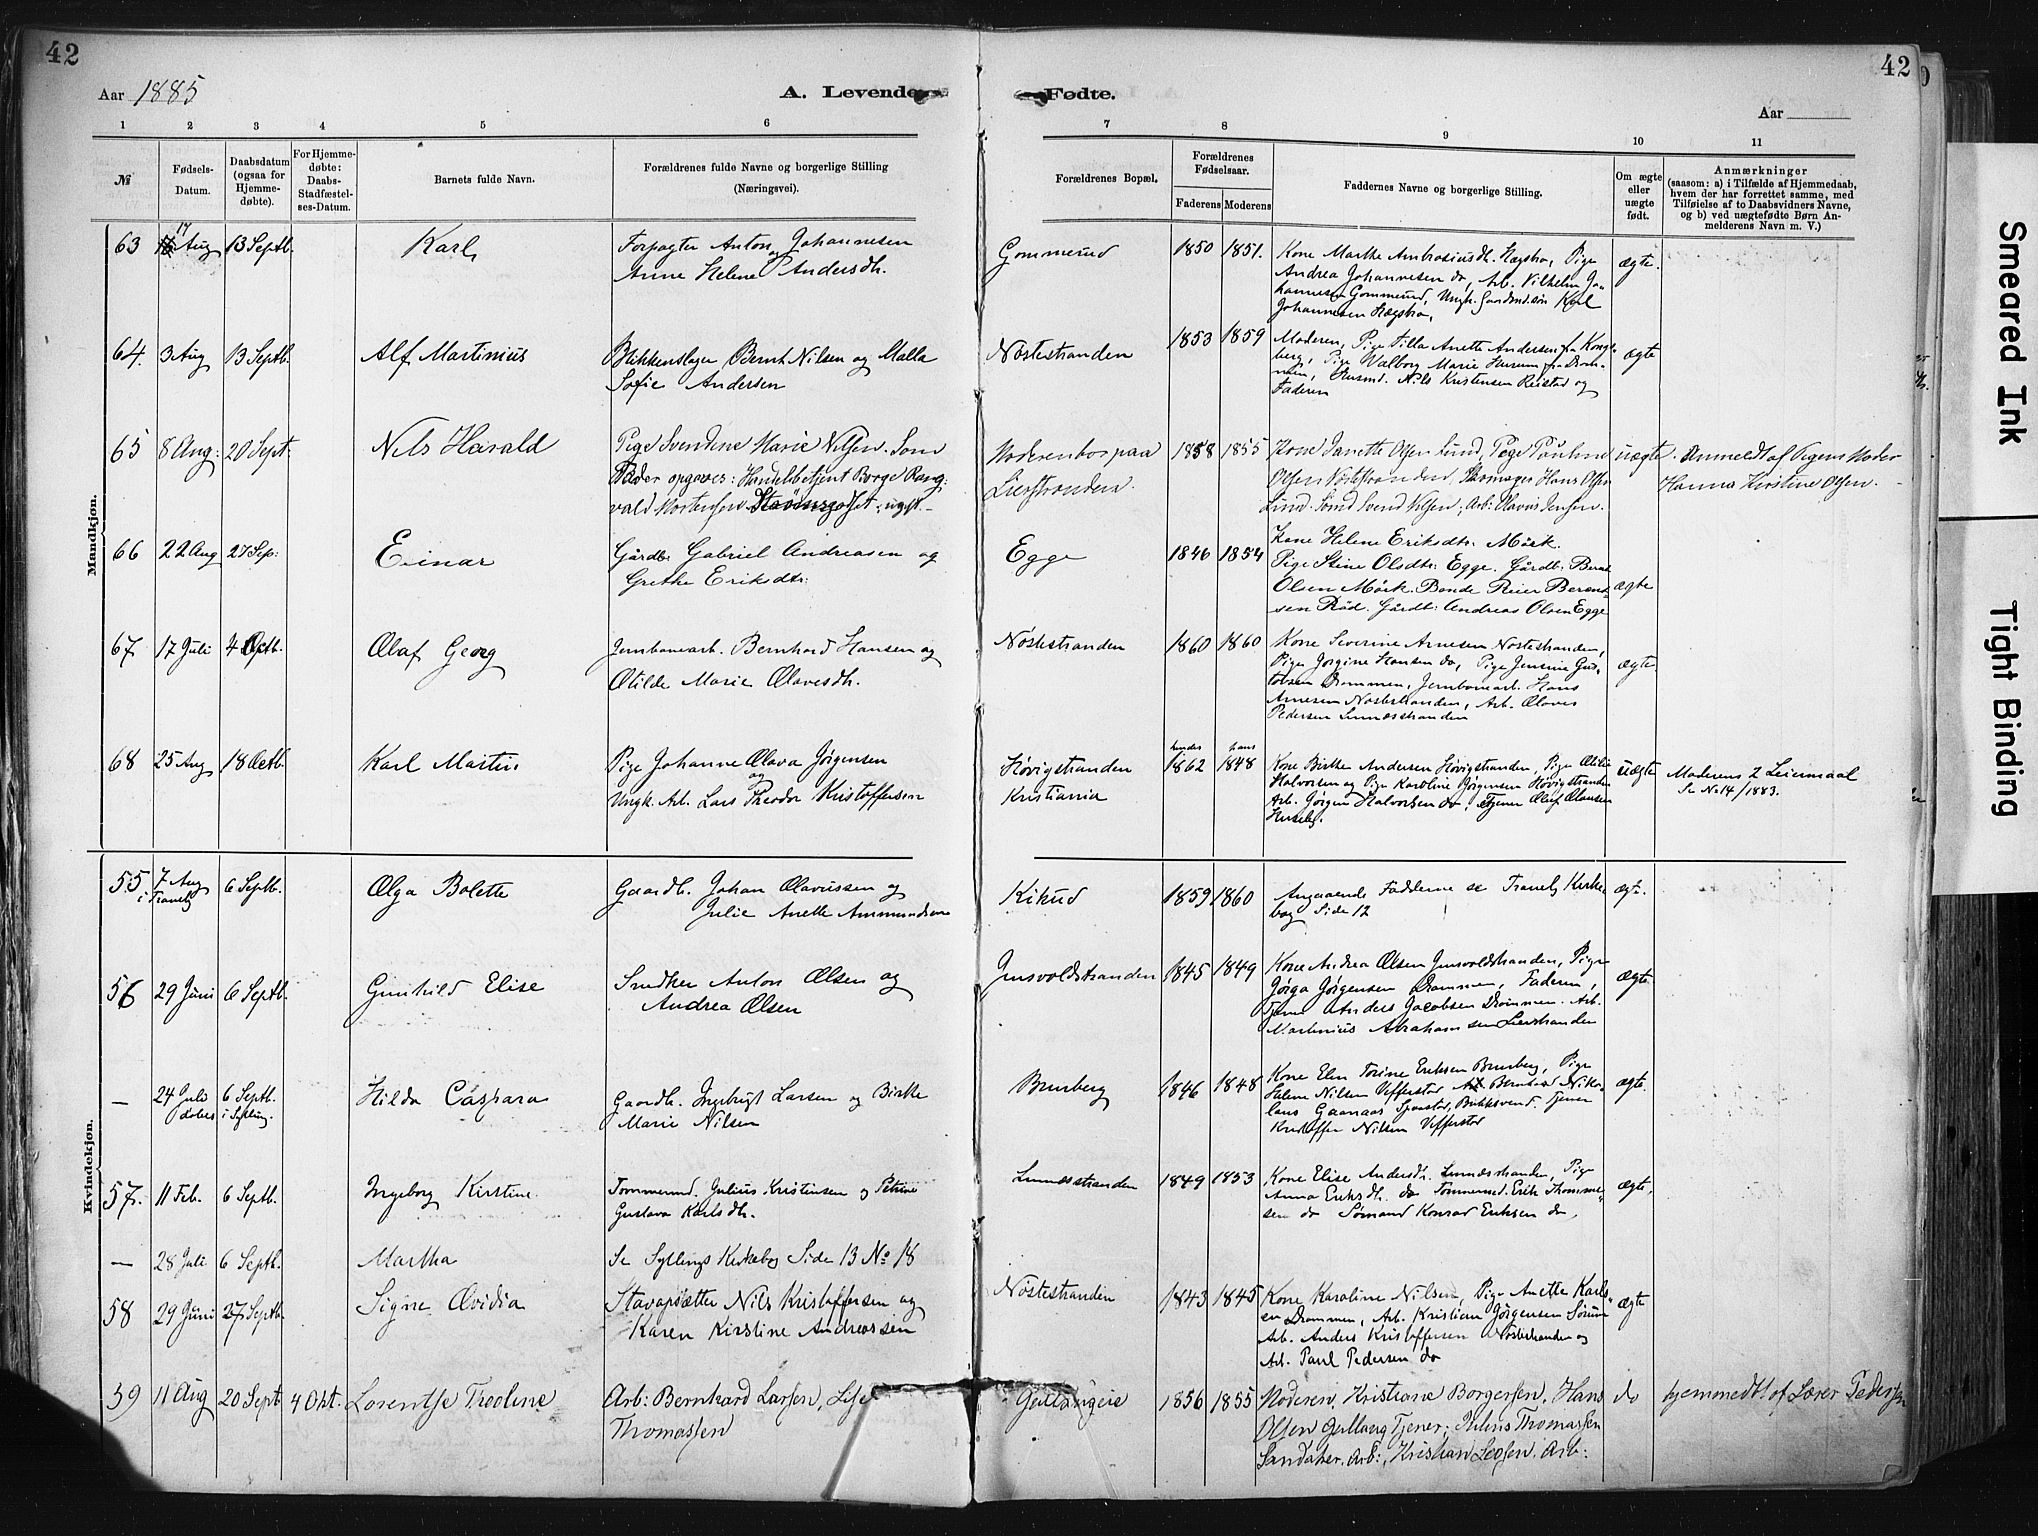 42
42
Aar 1885
A. Levende Fødte.
Aar
1 2 3 4 5 6 7 8 9 10 11
№
Fødsels-Datum.
Daabsdatum (ogsaa for Hjemmedøbte).
For Hjemmedøbte: Daabs-Stadfæstelses-Datum.
Barnets fulde Navn.
Forældrenes fulde Navne og borgerlige Stilling (Næringsvei).
Forældrenes Bopæl.
Forældrenes Fødselsaar.
Faderens Moderens
Faddernes Navne og borgerlige Stilling.
Om ægte eller uægte født.
Anmærkninger
(saasom: a) i Tilfælde af Hjemmedaab,
hvem der har forrettet samme, med
Tilføielse af to Daabsvidners Navne,
og b) ved uægtefødte Børn An-
melderens Navn m. V.)
Mandkjøn.
63 17 Aug 13 Septb. Karl
Forpagter Anton Johannesen og
Anne Helene Andersdh.
Gommerud 1850 1851.
Kone Marthe Ambrosiusdh. Hægstra, Pige
Andrea Johannesen do, Arb. Vilhelm Jo-
hannesen Gommerud, Ungk. Gaardmd.søn Karl
Johannesen Hægstra.
ægte.
64. 3 Aug 13 Septb. Alf Martinius
Blikkenslager Bernt Nilsen og Malla
Sofie Andersen
Nøstestranden 1853 1859
Moderen, Pige Tilla Anette Andersen fra Kongs-
berg, Pige Valborg Marie Hurum fra Dram-
men, Husmd. Nils Kristensen Reistad og
Faderen
ægte
65 8 Aug: 20 Sept: Nils Harald
Pige Svendine Marie Nilsen. Som
Fader opgaves: Handelsbetjent Borge Rang-
vald Mortensen Strømsgodset, ugift
Moderen bor paa
Lierstranden.
1858 1855
Kone Janette Olsen Lund, Pige Pauline
Olsen Nøstestranden, Skomager Hans Olsen
Lund. Sømd Svend Nilsen; Arb: Olavus Jensen.
uægte.
Anmeldt af Pigens Moder
Hanna Kirstine Olsen.
66 22 Aug 27 Sep: Einar
Gårdbr. Gabriel Andreasen og
Grethe Eriksdtr:
Egge 1846 1854
Kone Helene Eriksdtr. Mörk.
Pige Stine Olsdtr: Egge. Gårdb: Bernt
Olsen Mörk. Bonde Reier Berent-
sen Röd. Gårdb: Andreas Olsen Egge
ægte
67. 17 Juli 4 Octb. Olaf Georg
Jernbanearb. Bernhard Hansen og
Otilde Marie Olavesdh.
Nøstestranden 1860 1860
Kone Severine Arnesen Nøstestranden,
Pige Jørgine Hansen do, Pige Jensine Gus-
tavsen Drammen, Jernbanearb. Hans
Arnesen Nøstestranden, Arb. Olaves
Pedersen Linnæsstranden
ægte.
68 25 Aug 18 Octb. Karl Martin
Pige Johanne Olava Jørgensen
og
Ungk. Arb. Lars Theodor Kristoffersen
Høvigstranden
Kristiania
hendes 1862 hans 1848
Kone Birthe Andersen Høvigstranden, Pige Otilie
Halvorsen og Pige Karoline Jørgensen Høvigstranden
Arb. Jørgen Halvorsen do, Tjener Oluf Olausen
Huseby.
uægte
Moderens 2 Leiermaal
Se No 14/1883.
Kvindekjøn.
55 7 Aug i Tranby 6 Septb. Olga Bolette
Gaardb. Johan Olavussen og
Julie Anette Ammundsen
Kikud 1859 1860
Angaaende Fadderne se Tranby Kirke-
bog Side 12
ægte.
56 29 Juni 6 Septb. Gunhild Elise
Snedker Anton Olsen og
Andrea Olsen
Gusvoldstranden 1845 1849
Kone Andrea Olsen Gusvoldstranden, Pige
Jørga Jørgensen Drammen, Faderen,
Tjener Anders Jacobsen Drammen. Arb.
Martinius Abrahamsen Lierstranden
ægte.
— 24 Juli 6 Septb. i Sylling. Hilda Caspara
Gaardb. Ingebrigt Larsen og Birthe
Marie Nilsen
Brurberg 1846 1848
Kone Elen Torine Eriksen Brurberg, Pige
Helene Nilsen Vefferstad Bernhard Niko-
Kristoffer Nilsen Vefferstad
ægte.
57. 11 Feb. 6 Septb. Ingeborg Kirstine.
Tømmermd. Julius Kristensen og Petrine
Gustava Karlsdh.
Linnæsstranden 1849 1853
Kone Elise Andersdh. Linnæsstranden, Pige
Anna Eriksdh. do Tømmermd. Erik Thomme-
sen do Sømand Konrad Eriksen do,
ægte.
— 28 Juli 6 Septb. Martha
Se Syllings Kirkebog Side 13 No 18
58 29 Juni 27 Septb. Signe Ovidia
Nils Kristoffersen og
Karen Kirstine Andreassen
Nøstestranden 1843 1845
Kone Karoline Nilsen, Pige Anette Karls-
en Drammen, Arb. Kristian Jørgensen Sørum
Arb. Anders Kristoffersen Nøstestranden og
Arb. Paul Pedersen do
ægte
59 11 Aug 20 Sept 4 Okt. Lorentse Theoline
Arb: Bernhard Larsen, Lise
Thomassen
Gullaugeie 1856 1855
Moderen, Kristiane Borgersen, Hans
Olsen Gullaug Tjener, Julius Thomassen
Sandaker. Arb:, Kristian Larsen. Arb:
do
hjemmedbt af Lærer Pedersen
Smeared Ink
Tight Binding